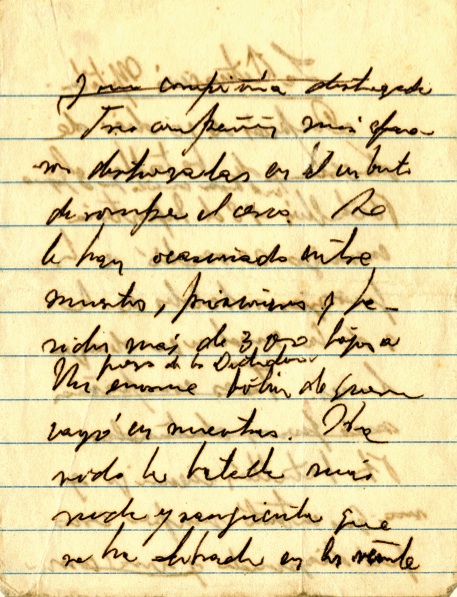 y una compañía destrozada
Tres compañías más fue
ron destrozadas en el intento
de romper el cerco. Se
le han ocasionado entre
muertos, prisioneros y he-
ridos más de 300 bajas a
fuerzas de la Dictadura
Un enorme botín de guerra
cayó en nuestras. Ha
sido la batalla más
ruda y sangrienta que
se ha librado en los veinte